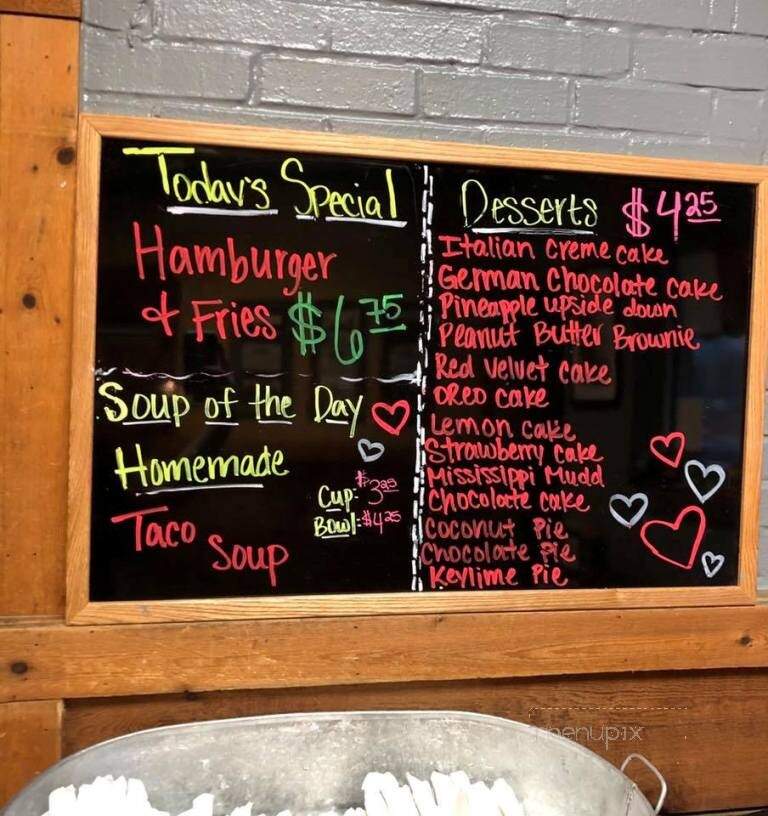 Today's Special
Hamburger
& Fries $6 75
Soup of the Day
Homemade
Cup: $3 25
Bowl: $4 25
Taco Soup
Desserts $4 25
Italian creme cake
German Chocolate cake
Pineapple upside down
Peanut Butter Brownie
Red Velvet cake
OREO cake
Lemon cake
Strawberry cake
Mississippi Mudd
Chocolate cake
Coconut Pie
Chocolate Pie
Keylime Pie
menupix